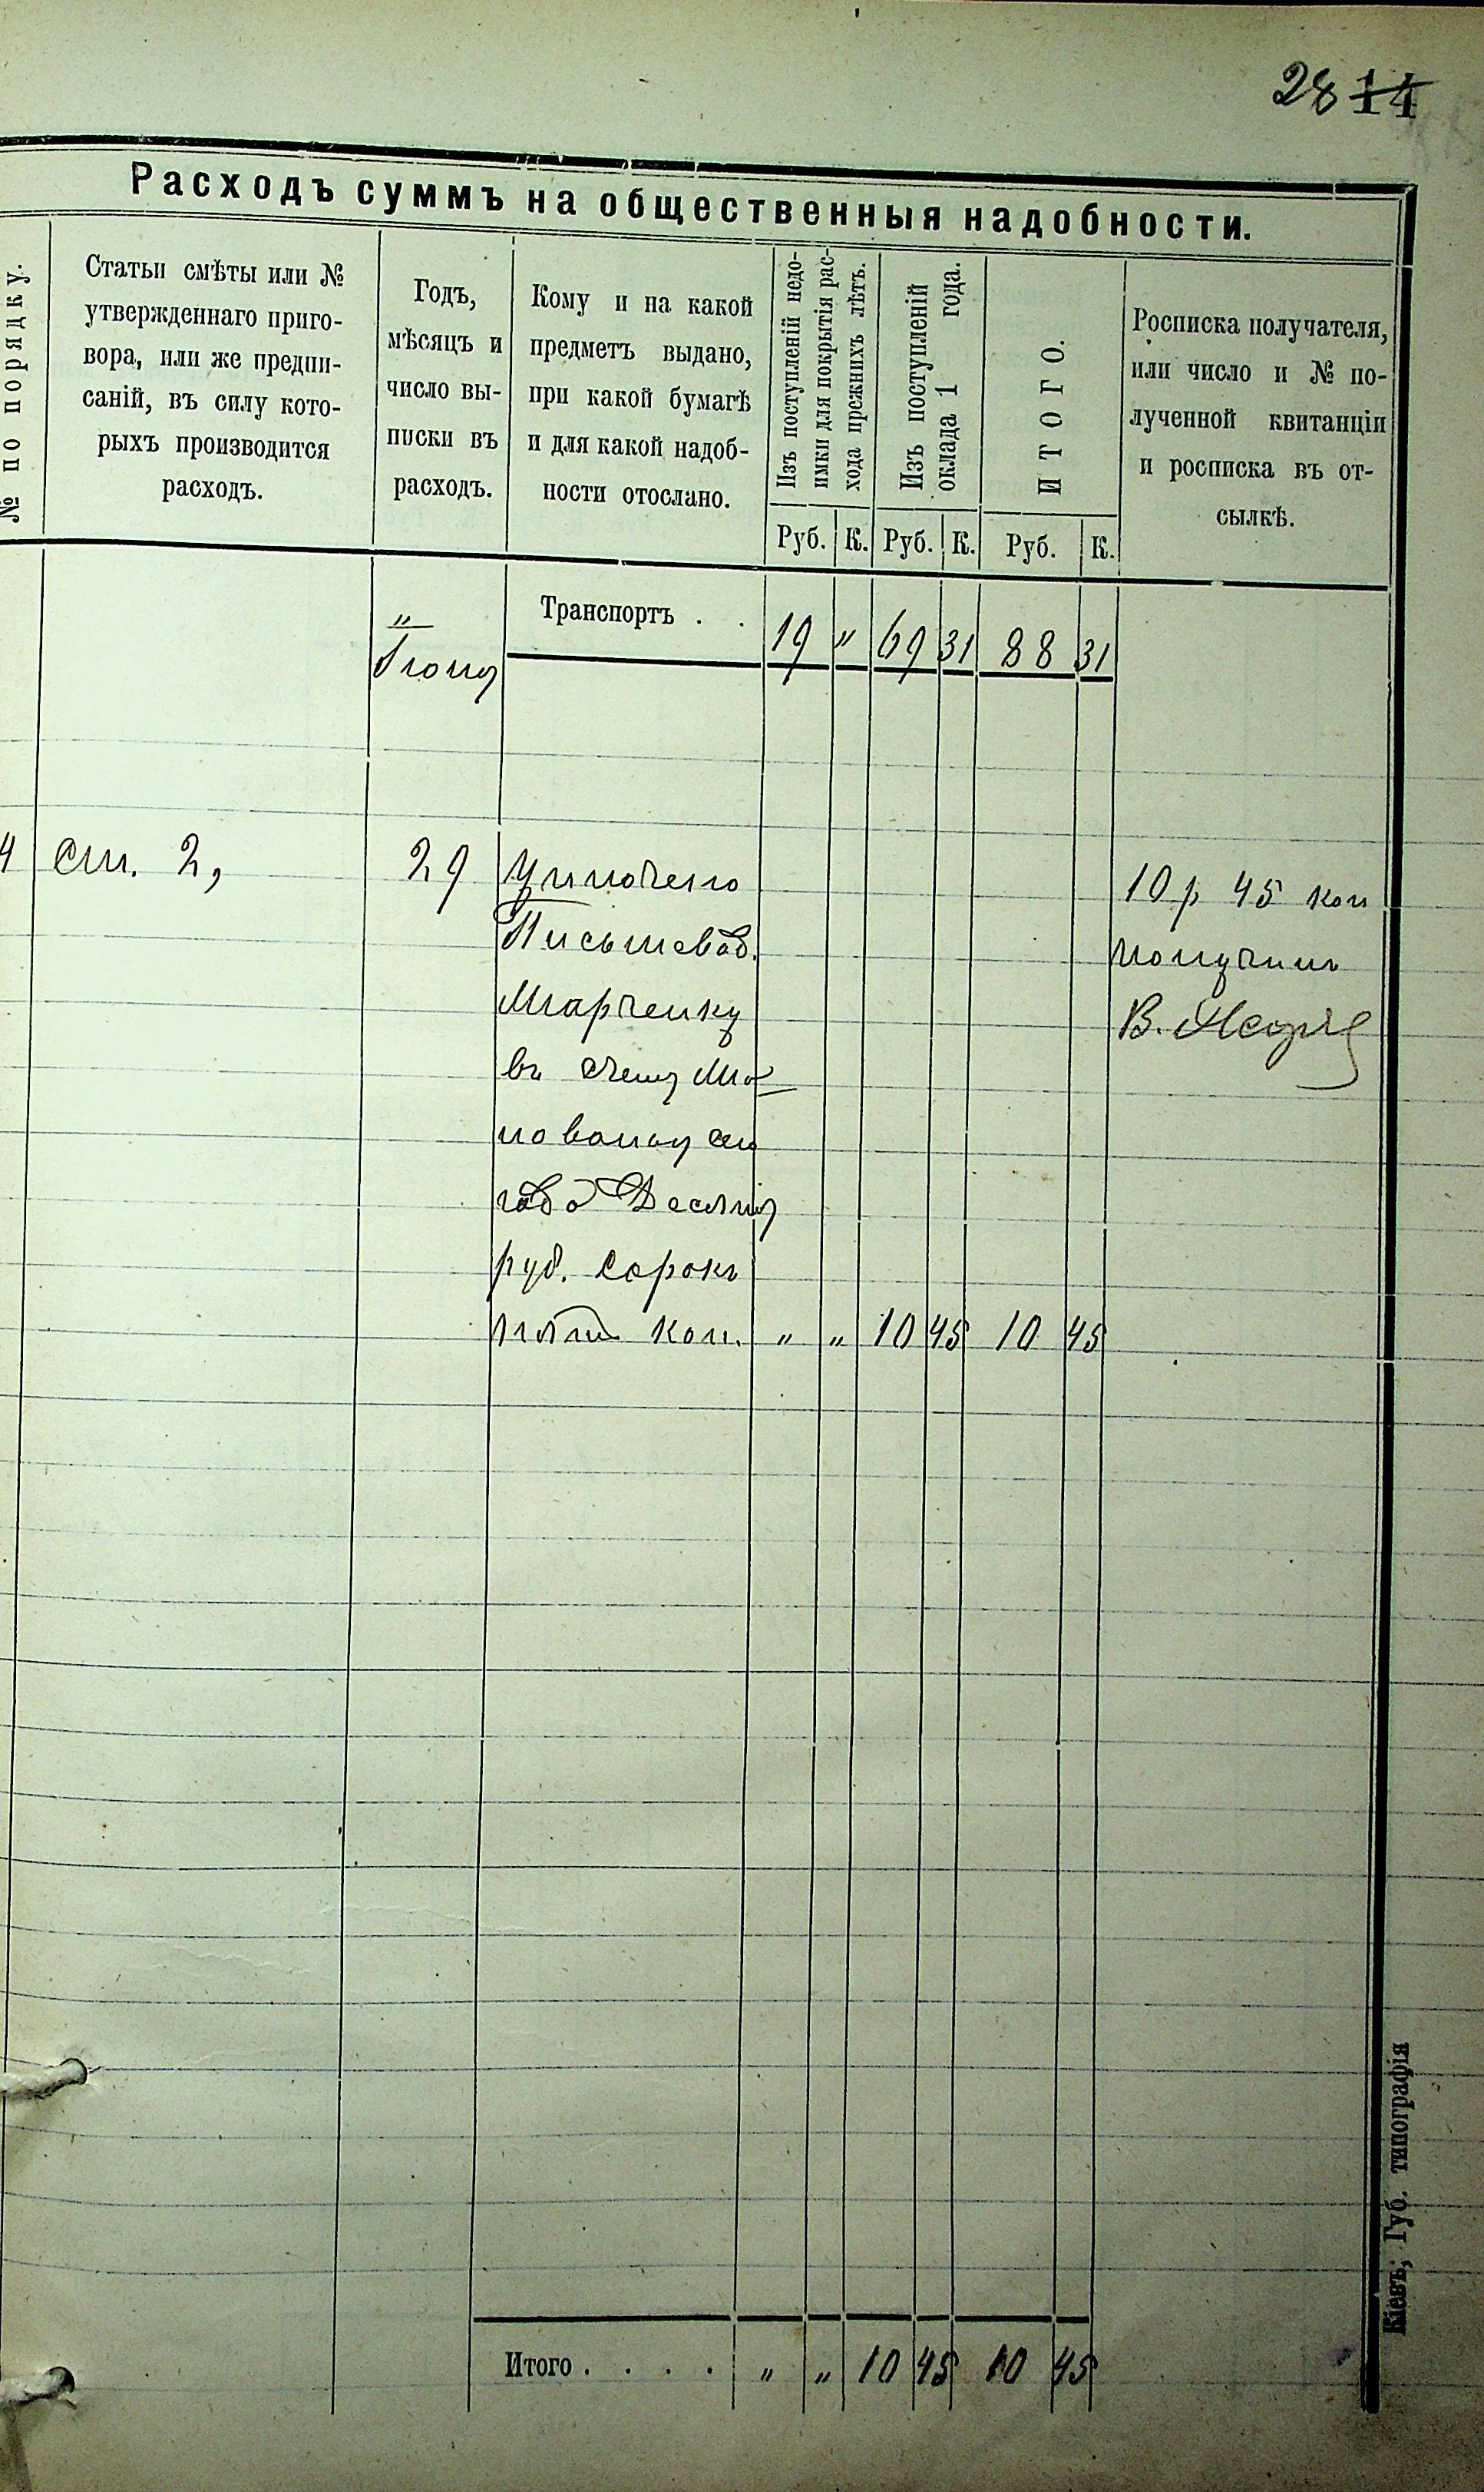 28 14
Расходъ суммъ на общественныя надобности.
№ по порядку.
Статьи смѣты или №
утвержденнаго приго-
вора, или же предпи-
саній, въ силу кото-
рыхъ производится
расходъ.
Годъ,
мѣсяцъ и
число вы-
писки въ
расходъ.
Кому и на какой
предметъ выдано,
при какой бумагѣ
и для какой надоб-
ности отослано.
Изъ поступленій недо-
имки для покрытія рас-
хода прежнихъ лѣтъ.
Изъ поступленій
оклада 1 года.
ИТОГО.
Росписка получателя,
или число и № по-
лученной квитанціи
и росписка въ от-
сылкѣ.
Руб. К. Руб. К. Руб. К.
Транспортъ . . 19 " 69 31 88 31
"
4 ст. 2, 29 Уплочено
Письмовод.
Марченку
въ счетъ
руб. сорокъ
пять коп. " " 10 45 10 45
10 р 45 коп
получилъ
В.
Итого . . . . " " 10 45 10 45
Кіевъ, Губ. типографія